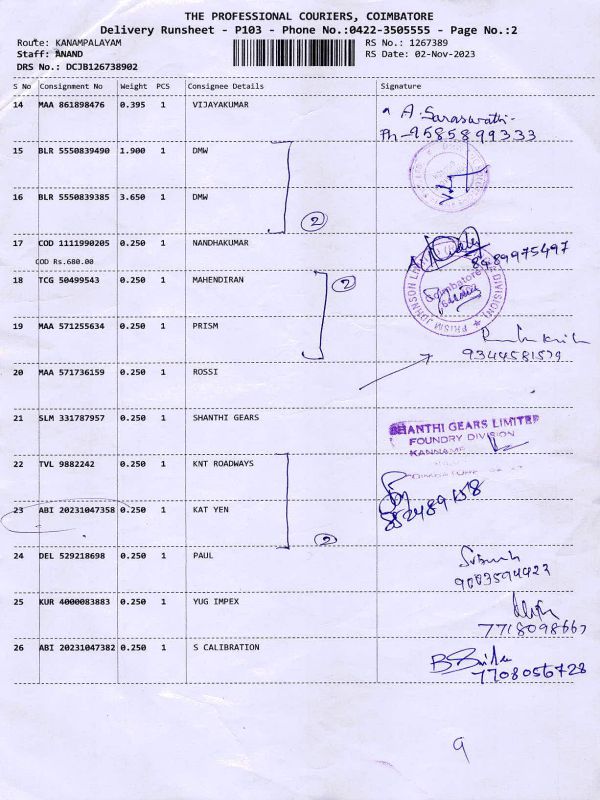 THE PROFESSIONAL COURIERS, COIMBATORE
Delivery Runsheet - P103 - Phone No.:0422-3505555 - Page No.:2
Route: KANAMPALAYAM RS No.: 1267389
Staff: ANAND RS Date: 02-Nov-2023
DRS No.: DCJB126738902
S No Consignment No Weight PCS Consignee Details Signature
14 MAA 861898476 0.395 1 VIJAYAKUMAR
A. Saraswathi
Ph-9585899333
15 BLR 5550839490 1.900 1 DMW
16 BLR 5550839385 3.650 1 DMW
2
17 COD 1111990205 0.250 1 NANDHAKUMAR
8489975497
COD Rs.680.00
18 TCG 50499543 0.250 1 MAHENDIRAN
2
Coimbatore
PRISM JOHNSON DIVISION
19 MAA 571255634 0.250 1 PRISM
9344581579
20 MAA 571736159 0.250 1 ROSSI
21 SLM 331787957 0.250 1 SHANTHI GEARS
SHANTHI GEARS LIMITED
FOUNDRY DIVISION
22 TVL 9882242 0.250 1 KNT ROADWAYS
23 ABI 20231047358 0.250 1 KAT YEN
2
24 DEL 529218698 0.250 1 PAUL
25 KUR 4000083883 0.250 1 YUG IMPEX
7718098667
26 ABI 20231047382 0.250 1 S CALIBRATION
7708056728
9